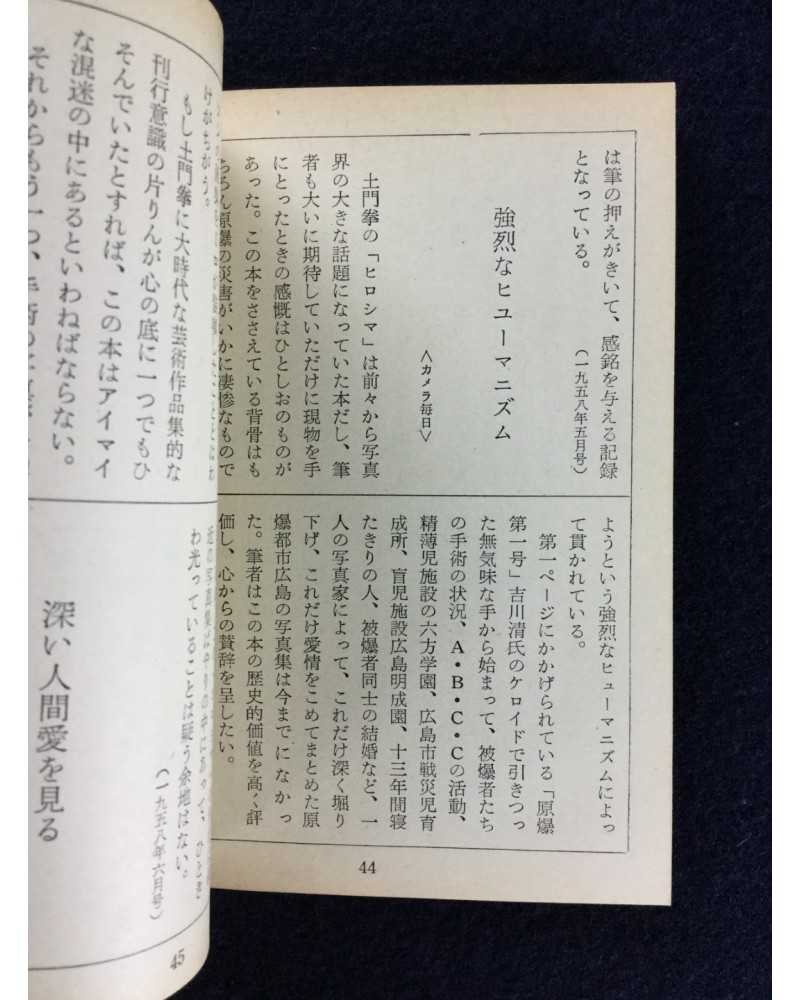 は筆の押えがきいて、感銘を与える記録
となっている。
(一九五八年五月号)
強烈なヒューマニズム
〈カメラ毎日〉
土門拳の「ヒロシマ」は前々から写真
界の大きな話題になっていた本だし、筆
者も大いに期待していただけに現物を手
にとったときの感慨はひとしおのものが
あった。この本をささえている背骨はも
ちろん原爆の災害がいかに凄惨なもので
ようという強烈なヒューマニズムによっ
て貫かれている。
第一ページにかかげられている「原爆
第一号」吉川清氏のケロイドで引きつっ
た無気味な手から始まって、被爆者たち
の手術の状況、A・B・C・Cの活動、
精薄児施設の六方学園、広島市戦災児育
成所、盲児施設広島明成園、十三年間寝
たきりの人、被爆者同士の結婚など、一
人の写真家によって、これだけ深く堀り
下げ、これだけ愛情をこめてまとめた原
爆都市広島の写真集は今までになかっ
た。筆者はこの本の歴史的価値を高く評
価し、心からの賛辞を呈したい。
44
けがちがう。
もし土門拳に大時代な芸術作品集的な
刊行意識の片りんが心の底に一つでもひ
そんでいたとすれば、この本はアイマイ
な混迷の中にあるといわねばならない。
それからもう一つ、手術の
わ光っていることは疑う余地はない。
(一九五八年六月号)
深い人間愛を見る
45